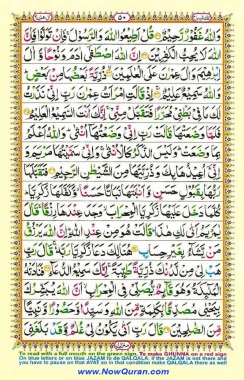 وَاللّٰهُ غَفُوْرٌ رَّحِيْمٌ قُلْ اَطِيْعُوا اللّٰهَ وَالرَّسُوْلَ فَاِنْ تَوَلَّوْا فَاِنَّ
اللّٰهَ لَا يُحِبُّ الْكٰفِرِيْنَ اِنَّ اللّٰهَ اصْطَفٰٓى اٰدَمَ وَنُوْحًا وَّاٰلَ
اِبْرٰهِيْمَ وَاٰلَ عِمْرٰنَ عَلَى الْعٰلَمِيْنَ ذُرِّيَّةًۢ بَعْضُهَا مِنْۢ بَعْضٍ
وَاللّٰهُ سَمِيْعٌ عَلِيْمٌ اِذْ قَالَتِ امْرَاَتُ عِمْرٰنَ رَبِّ اِنِّيْ نَذَرْتُ
لَكَ مَا فِيْ بَطْنِيْ مُحَرَّرًا فَتَقَبَّلْ مِنِّيْ اِنَّكَ اَنْتَ السَّمِيْعُ الْعَلِيْمُ
فَلَمَّا وَضَعَتْهَا قَالَتْ رَبِّ اِنِّيْ وَضَعْتُهَآ اُنْثٰى وَاللّٰهُ اَعْلَمُ
بِمَا وَضَعَتْ وَلَيْسَ الذَّكَرُ كَالْاُنْثٰى وَاِنِّيْ سَمَّيْتُهَا مَرْيَمَ وَ
اِنِّيْٓ اُعِيْذُهَا بِكَ وَذُرِّيَّتَهَا مِنَ الشَّيْطٰنِ الرَّجِيْمِ فَتَقَبَّلَهَا
رَبُّهَا بِقَبُوْلٍ حَسَنٍ وَّاَنْۢبَتَهَا نَبَاتًا حَسَنًا وَّكَفَّلَهَا زَكَرِيَّا
كُلَّمَا دَخَلَ عَلَيْهَا زَكَرِيَّا الْمِحْرَابَ وَجَدَ عِنْدَهَا رِزْقًا قَالَ
يٰمَرْيَمُ اَنّٰى لَكِ هٰذَا قَالَتْ هُوَ مِنْ عِنْدِ اللّٰهِ اِنَّ اللّٰهَ يَرْزُقُ
مَنْ يَّشَآءُ بِغَيْرِ حِسَابٍ هُنَالِكَ دَعَا زَكَرِيَّا رَبَّهٗ قَالَ رَبِّ
هَبْ لِيْ مِنْ لَّدُنْكَ ذُرِّيَّةً طَيِّبَةً اِنَّكَ سَمِيْعُ الدُّعَآءِ فَنَادَتْهُ
الْمَلٰٓئِكَةُ وَهُوَ قَآئِمٌ يُّصَلِّيْ فِي الْمِحْرَابِ اَنَّ اللّٰهَ يُبَشِّرُكَ
بِيَحْيٰى مُصَدِّقًۢا بِكَلِمَةٍ مِّنَ اللّٰهِ وَسَيِّدًا وَّحَصُوْرًا وَّنَبِيًّا
مِّنَ الصّٰلِحِيْنَ قَالَ رَبِّ اَنّٰى يَكُوْنُ لِيْ غُلٰمٌ وَّقَدْ بَلَغَنِيَ
To read with a full mouth on the green sign, To make GHUNNA on a red sign
On blue letters or on blue JAZAM is do QALQALA. if the JAZAM is not there and
you have to pause on that AYAT so in that condition make QALQALA there as well
www.NowQuran.com